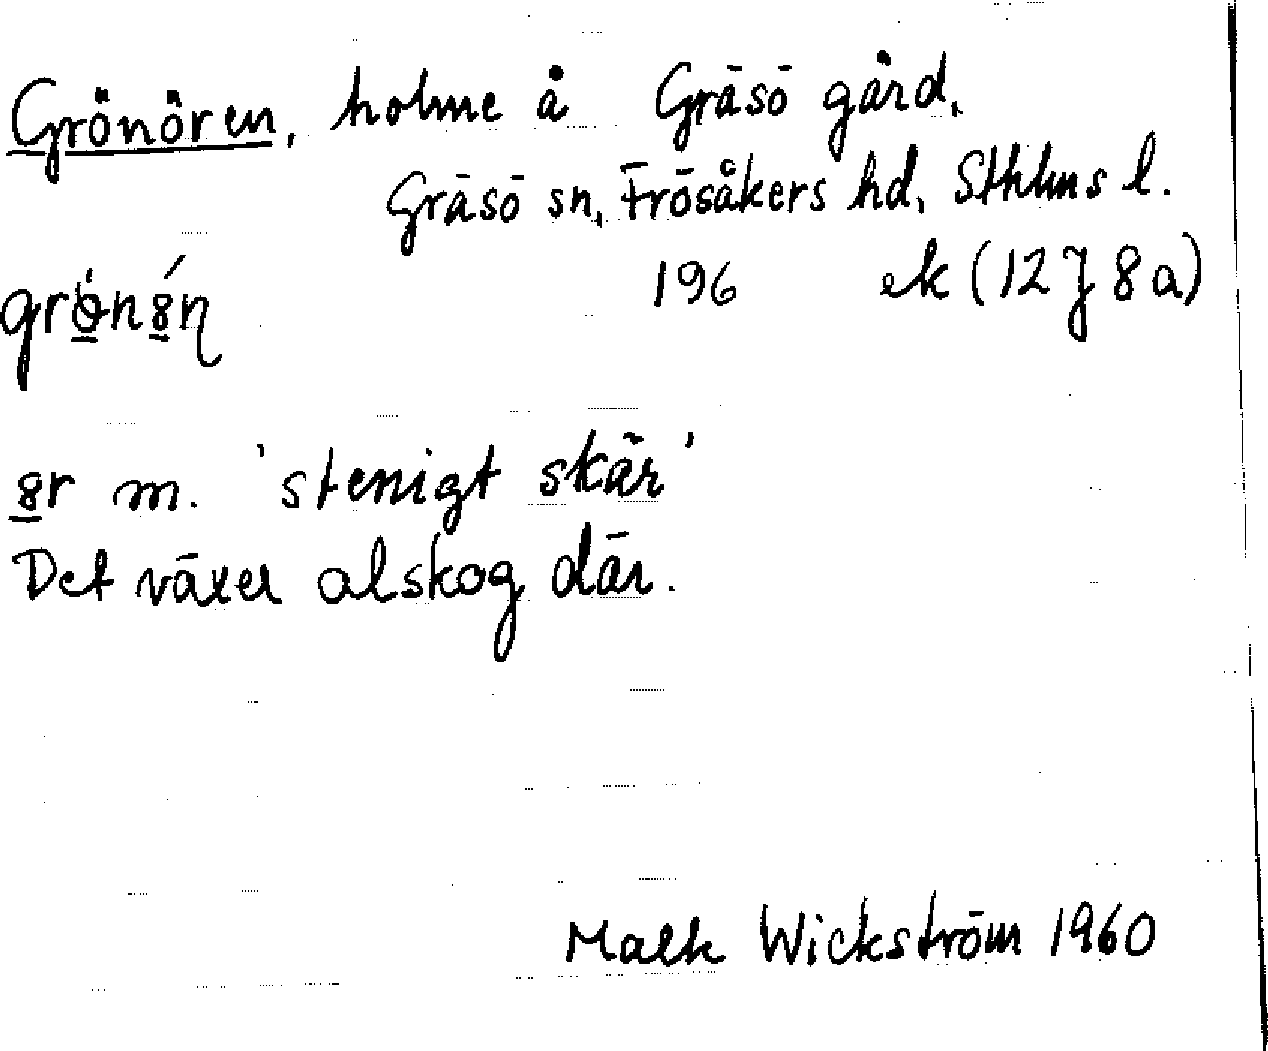 Grönören, holme å Gräsö gård,
Gräsö sn, Frösåkers hd, Sthlms l.
196 ek (12 J 8 a)
8r m. 'stenigt skär'
Det växer alskog där.
Wickström 1960